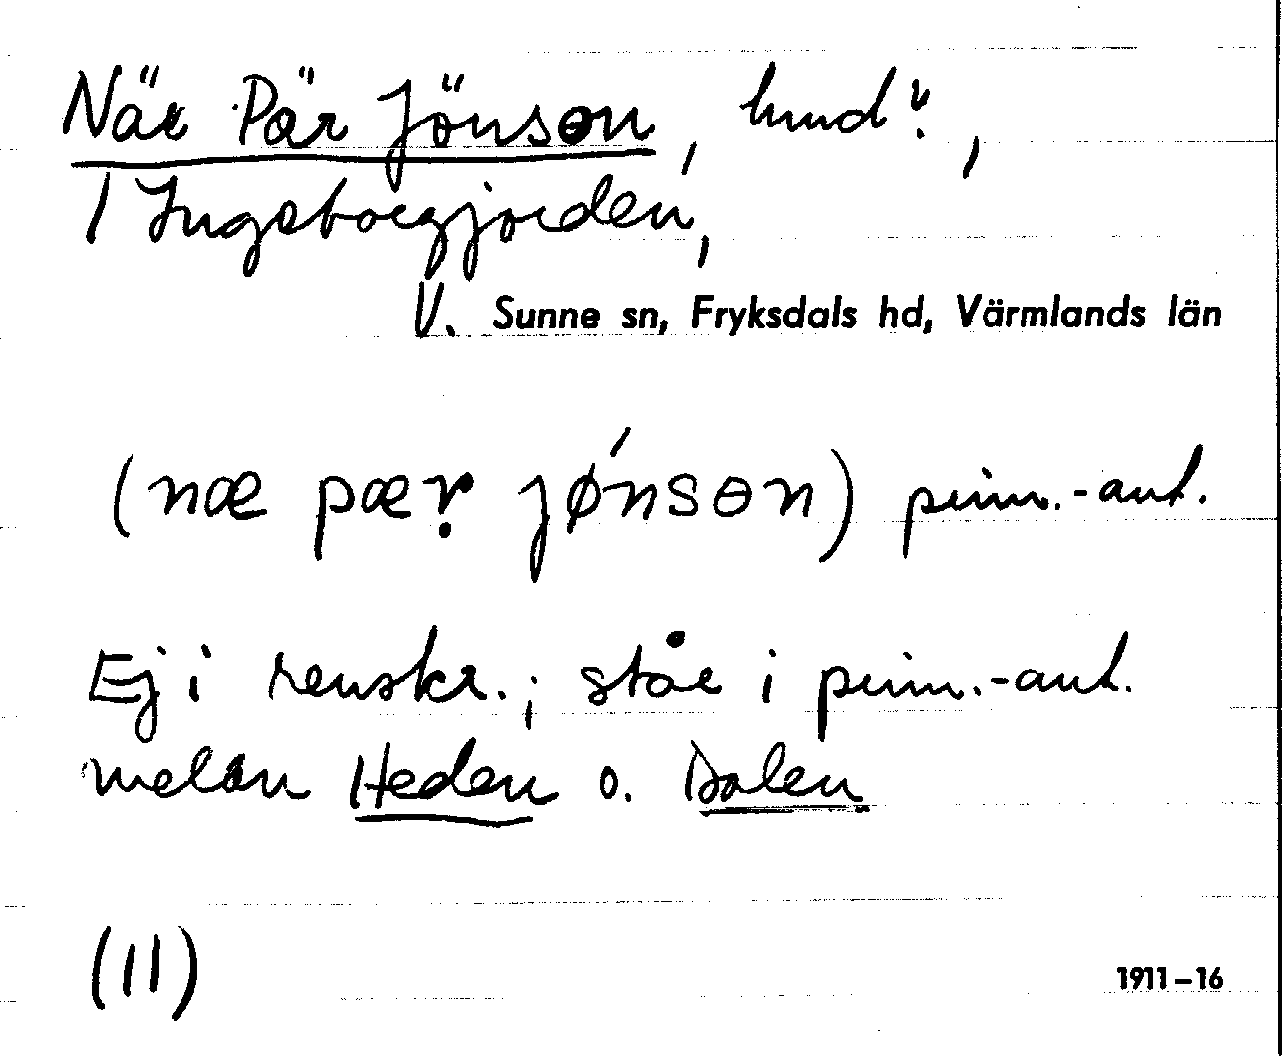 När Pär Jönson, hmd?,
1 Ingeborgjorden,
V. Sunne sn, Fryksdals hd, Värmlands län
(næ pæṛ jǿnsɵn) prim.-ant.
Ej i renskr.; står i prim.-ant.
mellan Heden o. Dalen
(11)
1911-16